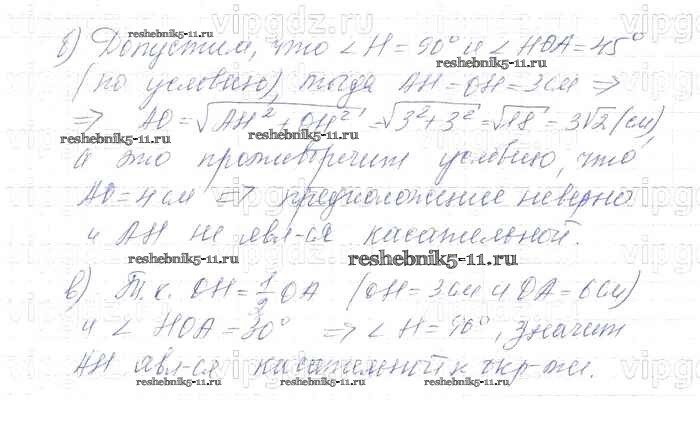 б) Допустим, что ∠H = 90° и ∠HOA = 45°
(по условию), тогда AH = OH = 3 см ⇒
⇒ AO = √AH² + OH² = √3² + 3² = √18 = 3√2 (см),
а это противоречит условию, что
AO = 4 см ⇒ предположение неверно
и AH не явл-ся касательной.
в) Т. к. OH = 1/2 OA (OH = 3 см и OA = 6 см)
и ∠HOA = 30° ⇒ ∠H = 90°, значит
AH явл-ся касательной к окр-ти.
reshebnik5-11.ru
reshebnik5-11.ru
reshebnik5-11.ru
reshebnik5-11.ru
reshebnik5-11.ru
reshebnik5-11.ru
reshebnik5-11.ru
reshebnik5-11.ru
reshebnik5-11.ru